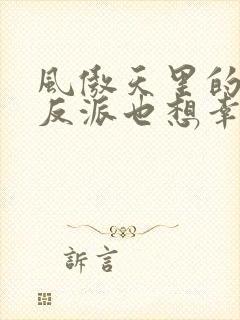 風傲天里的
反派也想幸
訴言